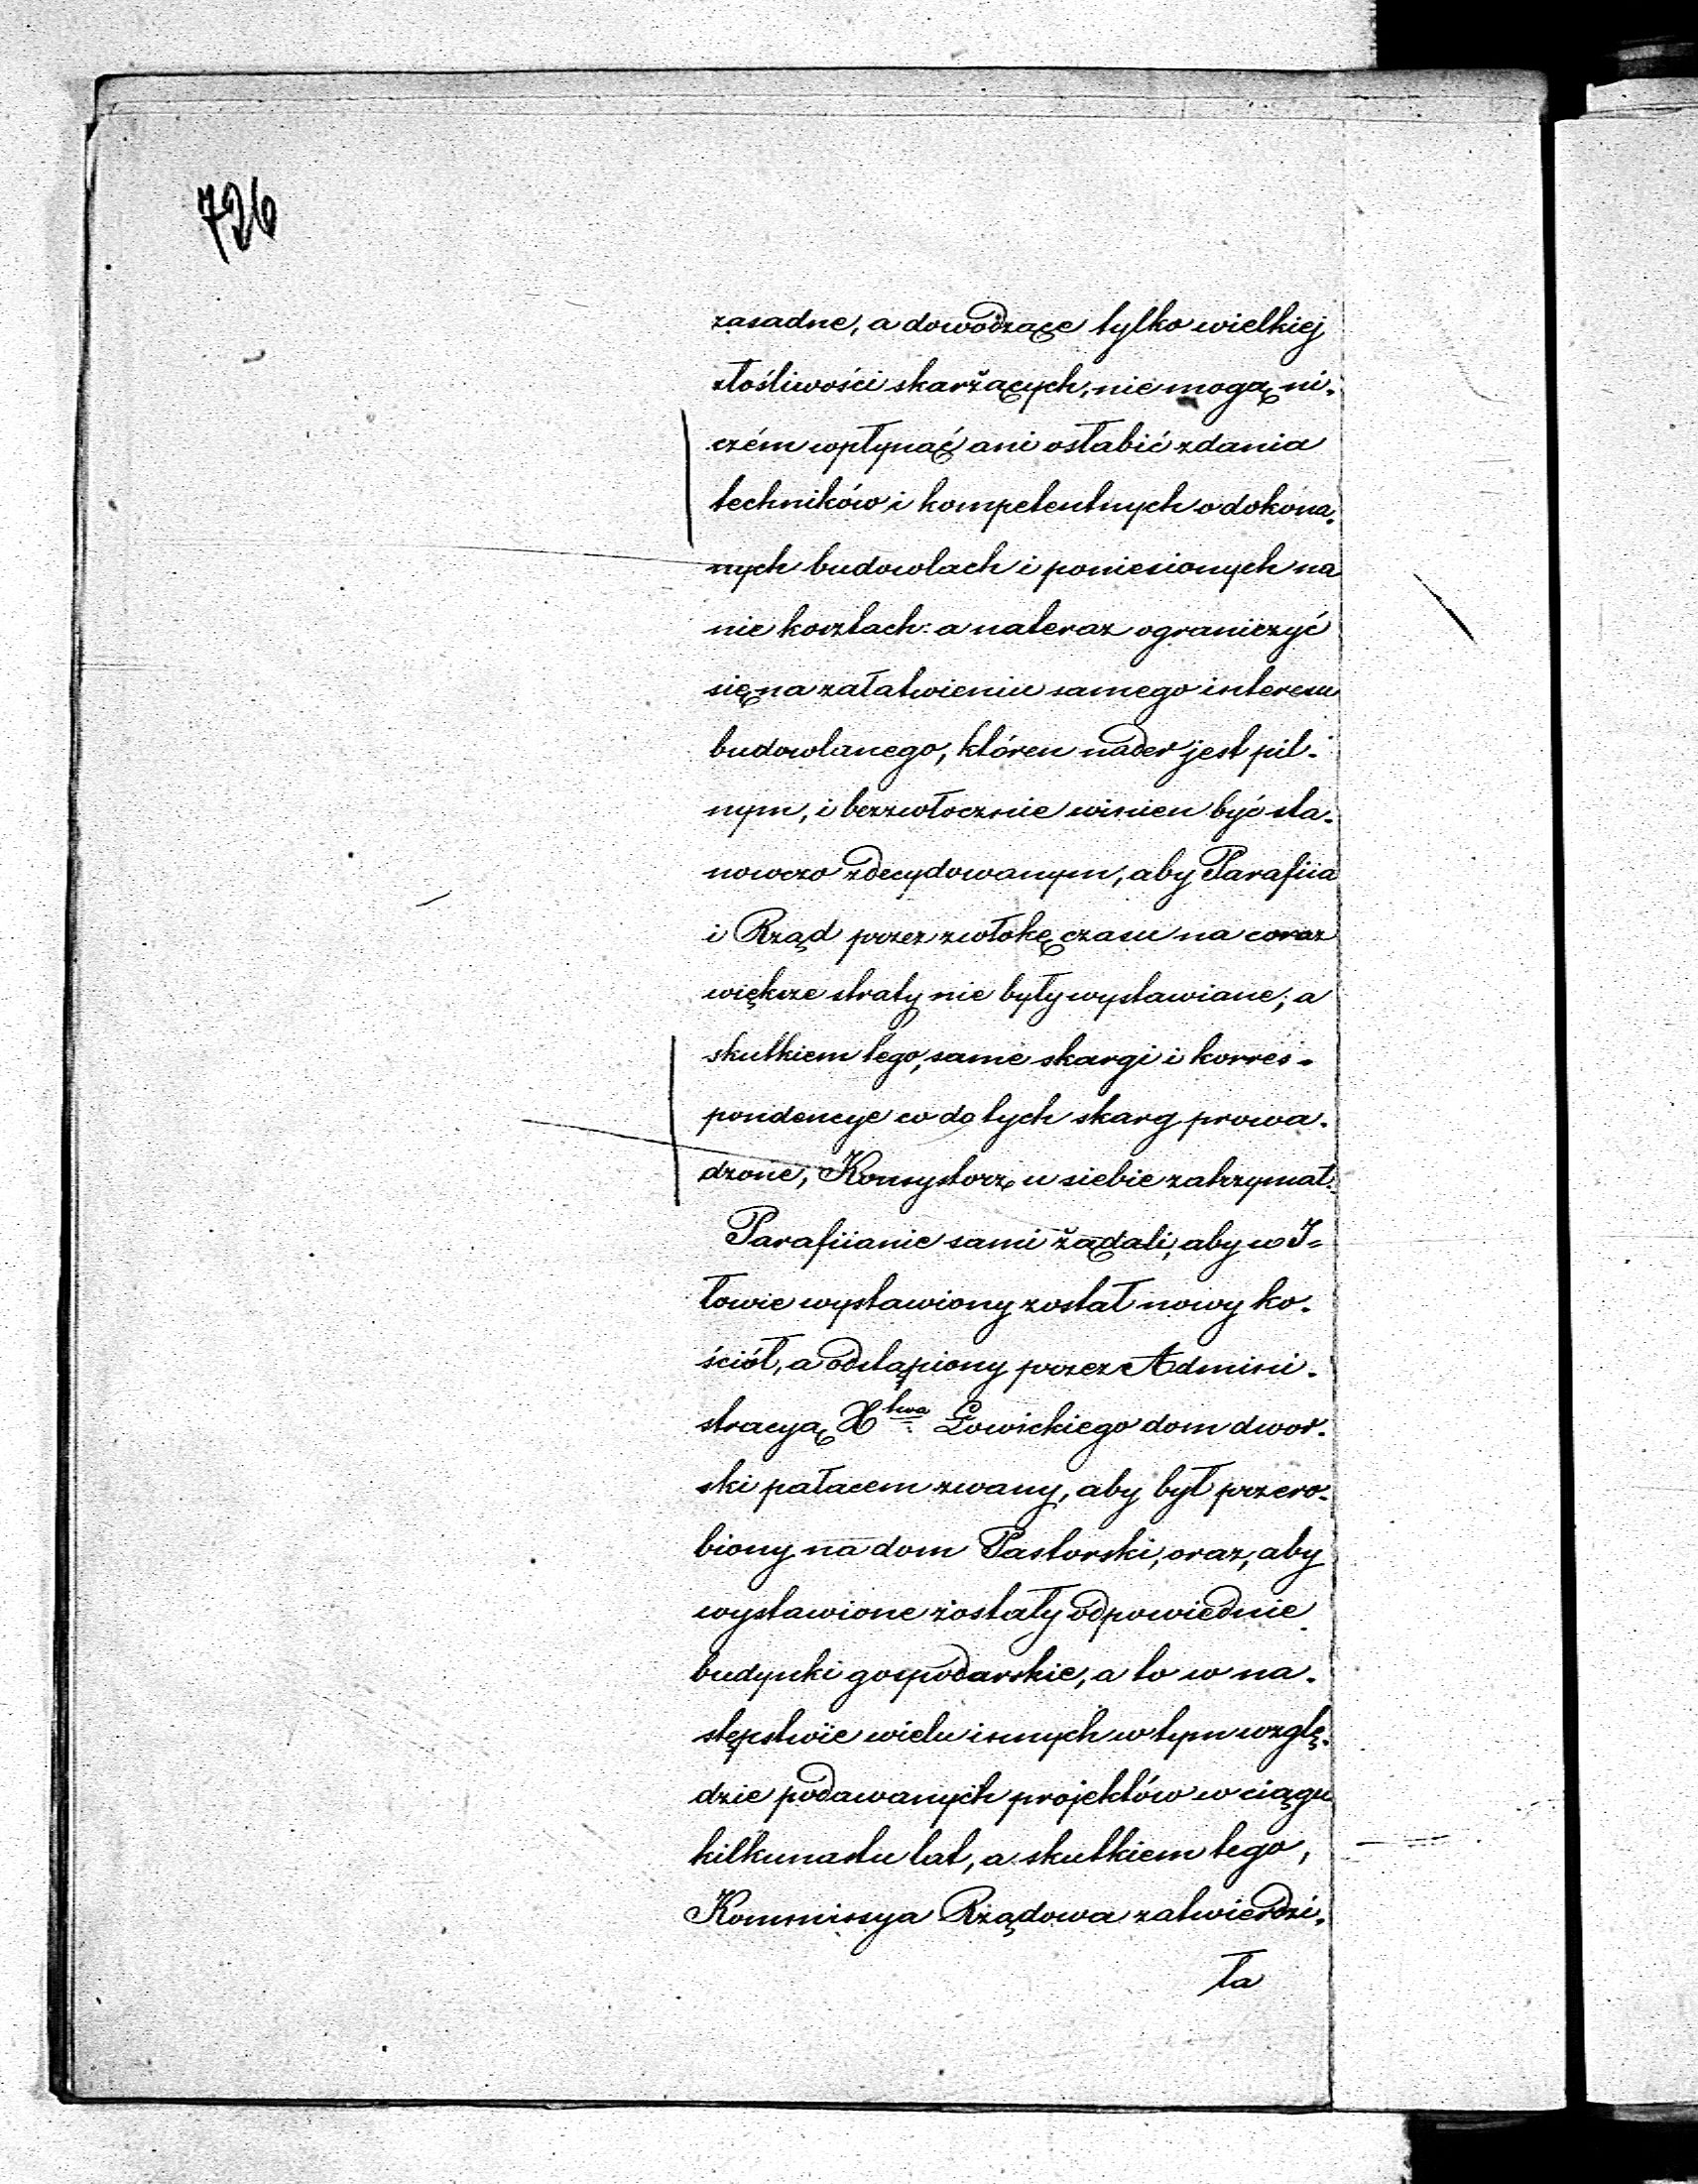 726
zasadne, a dowodzące tylko wielkiej
złośliwości skarżących, nie mogą ni-
czém wpłynąć ani osłabić zdania
techników i kompetentnych o dokona-
nych budowlach i poniesionych na
nie kosztach: a nateraz ograniczyć
się na załatwieniu samego interesu
budowlanego, któren nader jest pil-
nym, i bezzwłocznie winien być sta-
nowczo zdecydowanym, aby Parafiia
i Rząd przez zwłokę czasu na coraz
większe straty nie były wystawiane; a
skutkiem tego, same skargi i korres-
pondencye co do tych skarg prowa-
dzone, Konsystorz u siebie zatrzymał.
Parafiianie sami żądali, aby w I-
łowie wystawiony został nowy ko-
ściół, a odstąpiony przez Admini-
stracyą Xtwa Łowickiego dom dwor-
ski pałacem zwany, aby był przero-
biony na dom Pastorski, oraz, aby
wystawione zostały odpowiednie
budynki gospodarskie, a to w na-
stępstwie wielu innych w tym wzglę-
dzie podawanych projektów w ciągu
kilkunastu lat, a skutkiem tego,
Kommissya Rządowa zatwierdzi-
ła